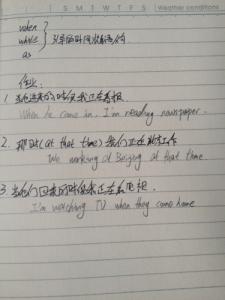 S M T W T F S Weather conditions
when
while 引导的时间状语从句
as
作业:
1. 当他进来的时候我正在看报.
When he came in. I'm reading newspaper.
2. 那时(at that time)我们正在北京工作
We working at Beijing at that time.
3. 当他们回来的时候我正在看电视.
I'm watching TV when they come home